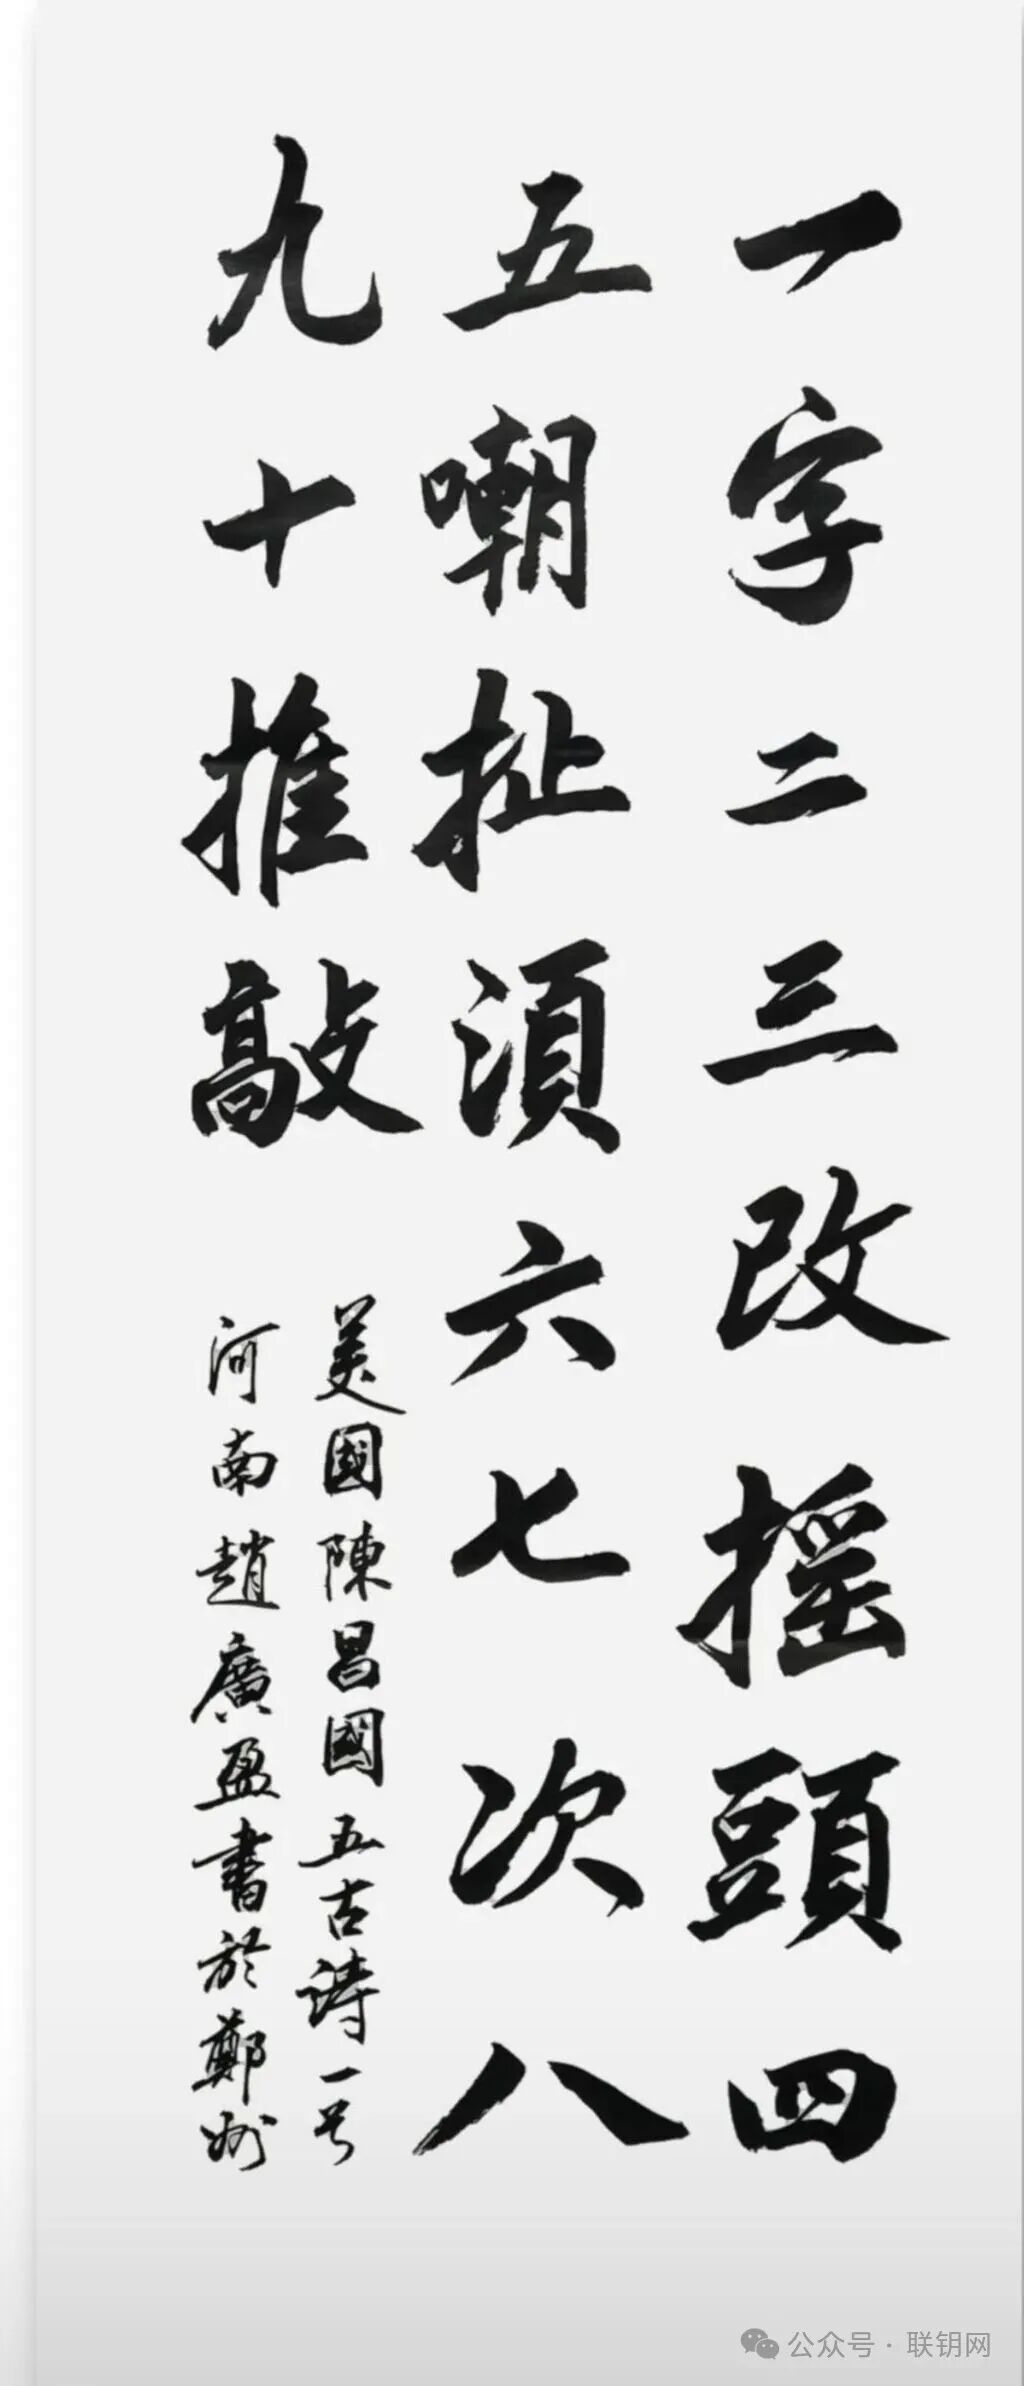 一字二三改摇頭四
五嘲扯須六七次八
九十推敲
美國陳昌國五古詩一号
河南趙廣盈書於鄭州
公众号·联钥网